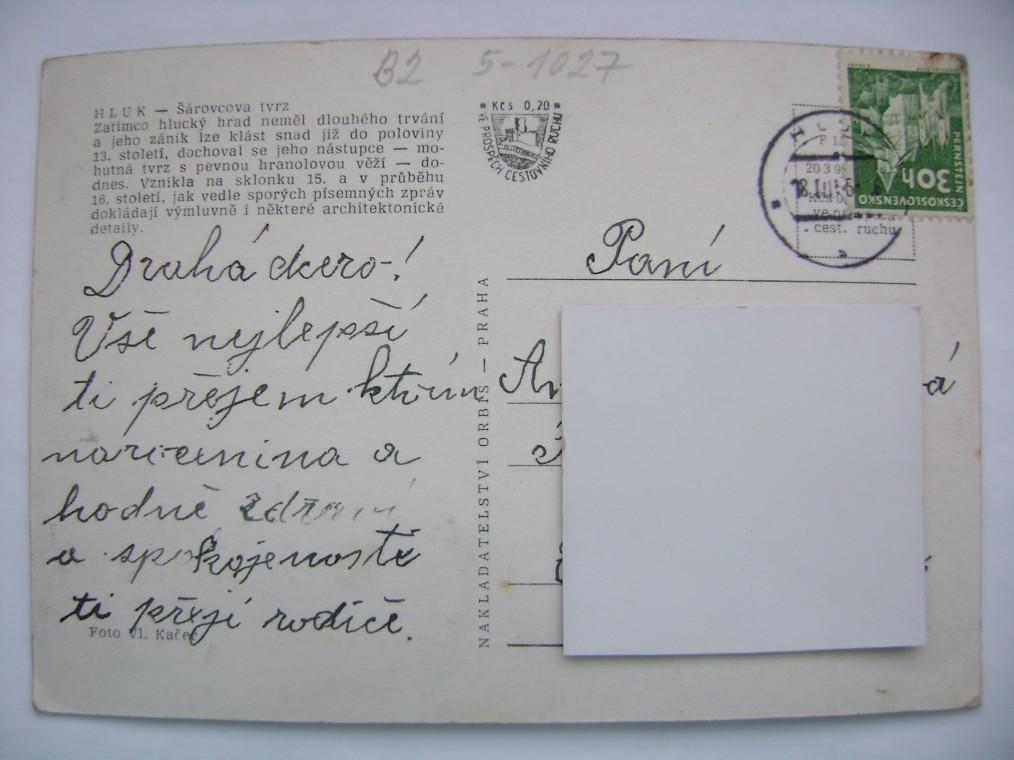 B2 5-1027
HLUK — Šárovcova tvrz
Zatímco hlucký hrad neměl dlouhého trvání
a jeho zánik lze klást snad již do poloviny
13. století, dochoval se jeho nástupce — mo-
hutná tvrz s pevnou hranolovou věží — do-
dnes. Vznikla na sklonku 15. a v průběhu
16. století, jak vedle sporých písemných zpráv
dokládají výmluvně i některé architektonické
detaily.
Drahá dcero!
Vše nejlepší
ti přejem ktvím
narozenina a
hodně zdraví
a spokojenosti
ti přejí rodiče.
Foto Vl. Kačer
NAKLADATELSTVÍ ORBIS — PRAHA
Kčs 0,20
VE PROSPĚCH CESTOVNÍHO RUCHU
20 3 9
cest. ruchu
ČESKOSLOVENSKO
30h
PERNŠTEJN
Paní
An
á